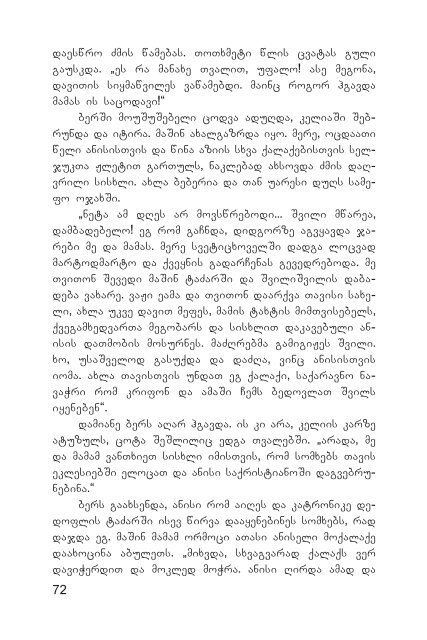 დაესწრო ძმის წამებას. თოთხმეტი წლის ცვატას გული
გაუსკდა. „ეს რა მანახე თვალით, უფალო! ასე მეგონა,
დავითის სიყმაწვილეს ვაწამებდი. მაინც როგორ ჰგავდა
მამას ის საცოდავი!“
ბერში მოუშუშებელი ცოდვა ადუღდა, კელიაში შებ-
რუნდა და იტირა. მაშინ ახალგაზრდა იყო. მერე, ოცდაათი
წელი ანისისთვის და წინა აზიის სხვა ქალაქებისთვის სელ-
ჯუკთა ჟლეტით გართულს, ნაკლებად ახსოვდა ძმის დაღ-
ვრილი სისხლი. ახლა ბებერია და თან უარესი დუღს სამე-
ფო ოჯახში.
„ნეტა ამ დღეს არ მოვსწრებოდი... შვილი მწარეა,
დამბადებელო! ეგ რომ გაჩნდა, დიდგორზე აგვყავდა ჯა-
რები მე და მამას. მერე სვეტიცხოველში დადგა ლოცვად
მარტოდმარტო და ქვეყნის გადარჩენას გევედრებოდა. მე
თვითონ შევედი მაშინ ტაძარში და შვილიშვილის დაბა-
დება ვახარე. ვაჟი ეამა და თვითონ დაარქვა თავისი სახე-
ლი, ახლა უკვე დავით მეფეს, მამის ტახტის მიმთვისებელს,
ქვეგამხედვართა მეგობარს და სისხლით დაკავებული ან-
ისის დათმობის მოსურნეს. მაძღრებმა გამიგიჟეს შვილი.
ხო, უსაშველოდ გასუქდა და დაძღა, ვინც ანისისთვის
იომა. ახლა თავისთვის უნდათ ეგ ქალაქი, საქარავნო ნა-
ვაჭრი რომ კრიფონ და ამაში ჩემს ბედოვლათ შვილს
იყენებენ“.
დამიანე ბერს აღარ ჰგავდა. ის კი არა, კელიის კარზე
ატუზულს, ცოტა შეშლილიც ედგა თვალებში. „არადა, მე
და მამამ ვანთხიეთ სისხლი იმისთვის, რომ სომხებს თავის
ეკლესიებში ელოცათ და ანისი საქრისტიანოში დაგვებრუ-
ნებინა.“
ბერს გაახსენდა, ანისი რომ აიღეს და კატრონიკე დე-
დოფლის ტაძარში ისევ წირვა დააყენებინეს სომხებს, რად
დაჯდა ეგ. მაშინ მამამ ორმოცი ათასი ანისელი მოქალაქე
დაახოცინა აბულეთს. „მიხვდა, სხვაგვარად ქალაქს ვერ
დავიჭერდით და მოკლედ მოჭრა. ანისი ღირდა ამად და
72